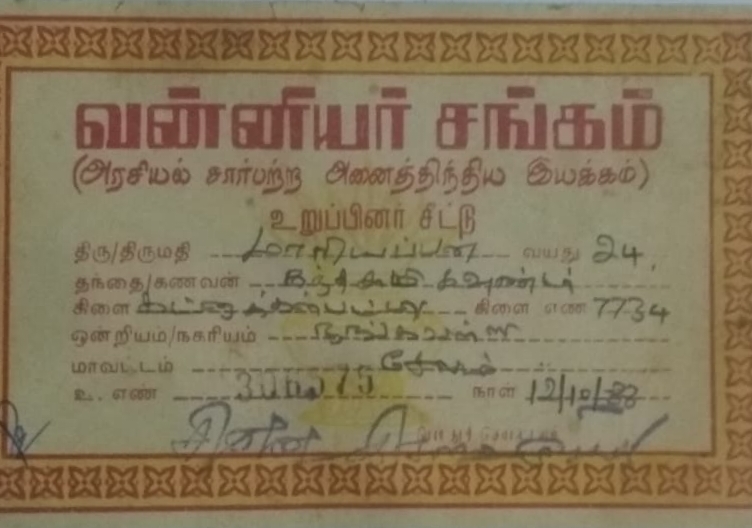 வன்னியர் சங்கம்
(அரசியல் சார்பற்ற அனைத்திந்திய இயக்கம்)
உறுப்பினர் சீட்டு
திரு/திருமதி மாரியப்பன் வயது 24
தந்தை/கணவன் கவுண்டர்
கிளை கிளை எண் 7734
ஒன்றியம்/நகரியம் நங்கவள்ளி
மாவட்டம் சேலம்
உ. எண் நாள்